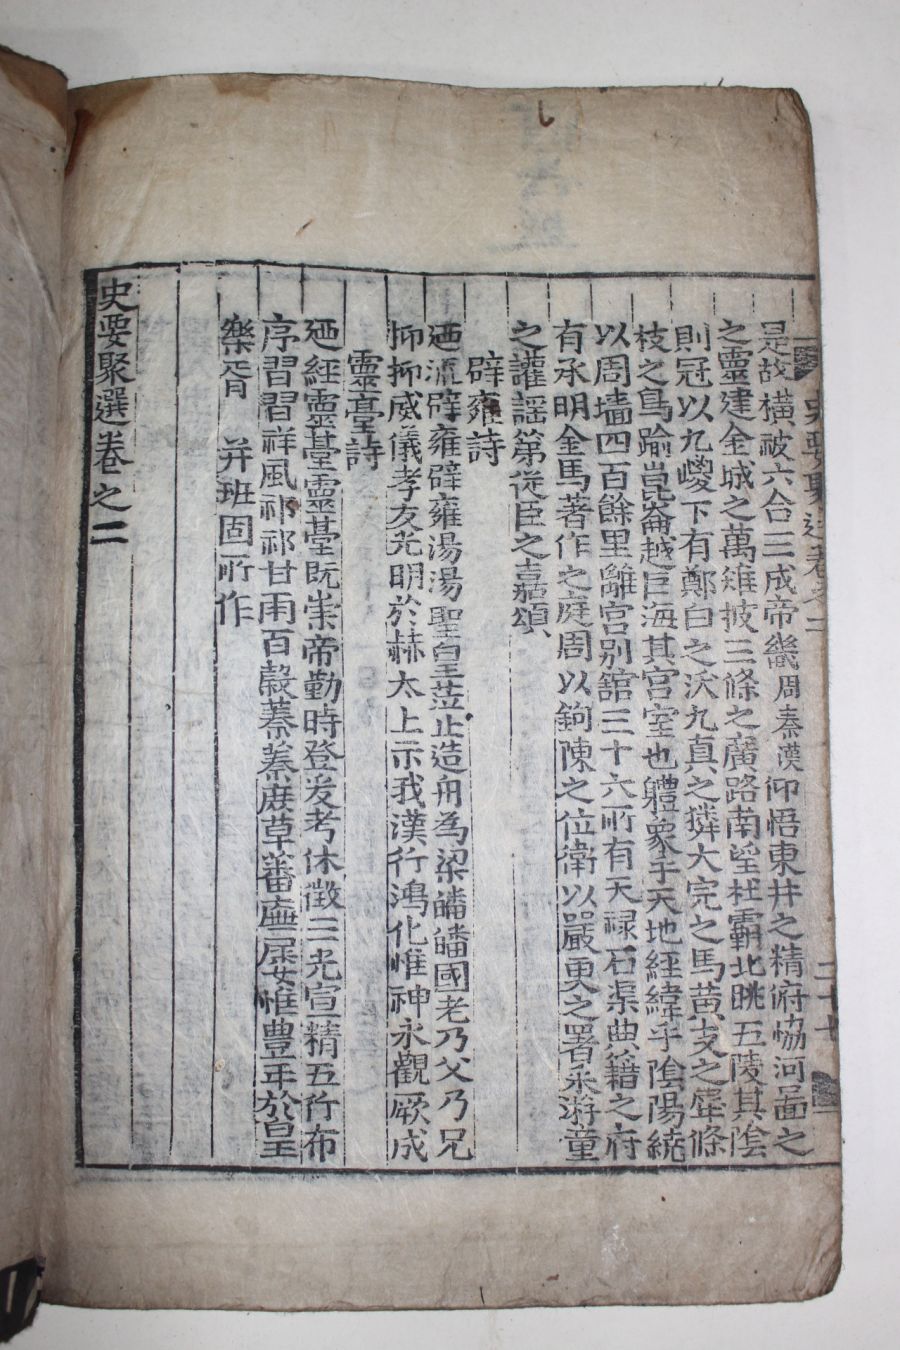 是故橫被六合三成帝畿周秦漢仰悟東井之精府恊河畵之
之靈建金城之萬雉披三條之廣路南望杜霸北眺五陵其陰
則冠以九嵕下有鄭白之沃九真之獜大宛之馬黃支之犀條
枝之鳥踰崑崙越巨海其宮室也軆象乎天地經緯乎陰陽繞
以周墻四百餘里離宮别舘三十六所有天禄石渠典籍之府
有承明金馬著作之庭周以鉤陳之位衛以嚴更之署采游童
之讙謡第從臣之嘉頌
辟雍詩
廼流辟雍辟雍湯湯聖皇莅止造舟為梁皤皤國老乃父乃兄
抑抑威儀孝友光明於赫太上示我漢行鴻化惟神永觀厥成
靈臺詩
廼經靈䑓靈䑓既崇帝勤時登爰考休徵三光宣精五行布
序習習祥風祁祁甘雨百穀蓁蓁庶草蕃廡屢惟豊年於皇
樂胥 并班固所作
史要聚選卷之二
史要聚選卷之二
二十七